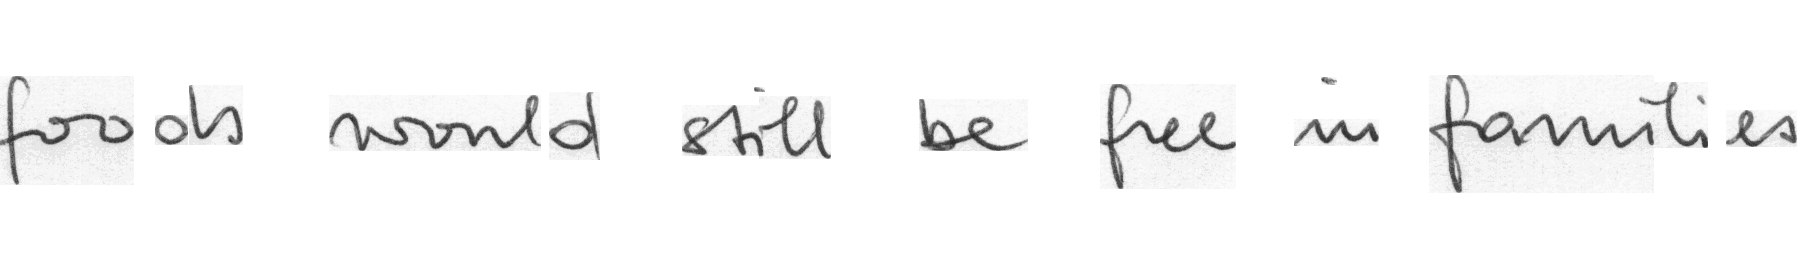 foods would still be free in families